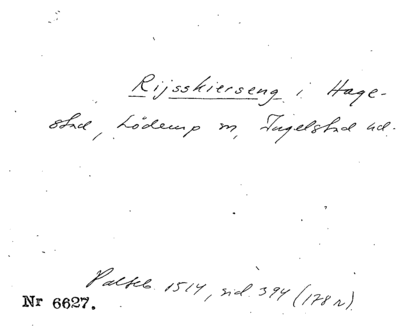 Rijsskierseng i Hage-
stad, Löderup sn, Ingelstad hd.
Palteb. 1514, sid. 394 (178 r).
Nr 6627.